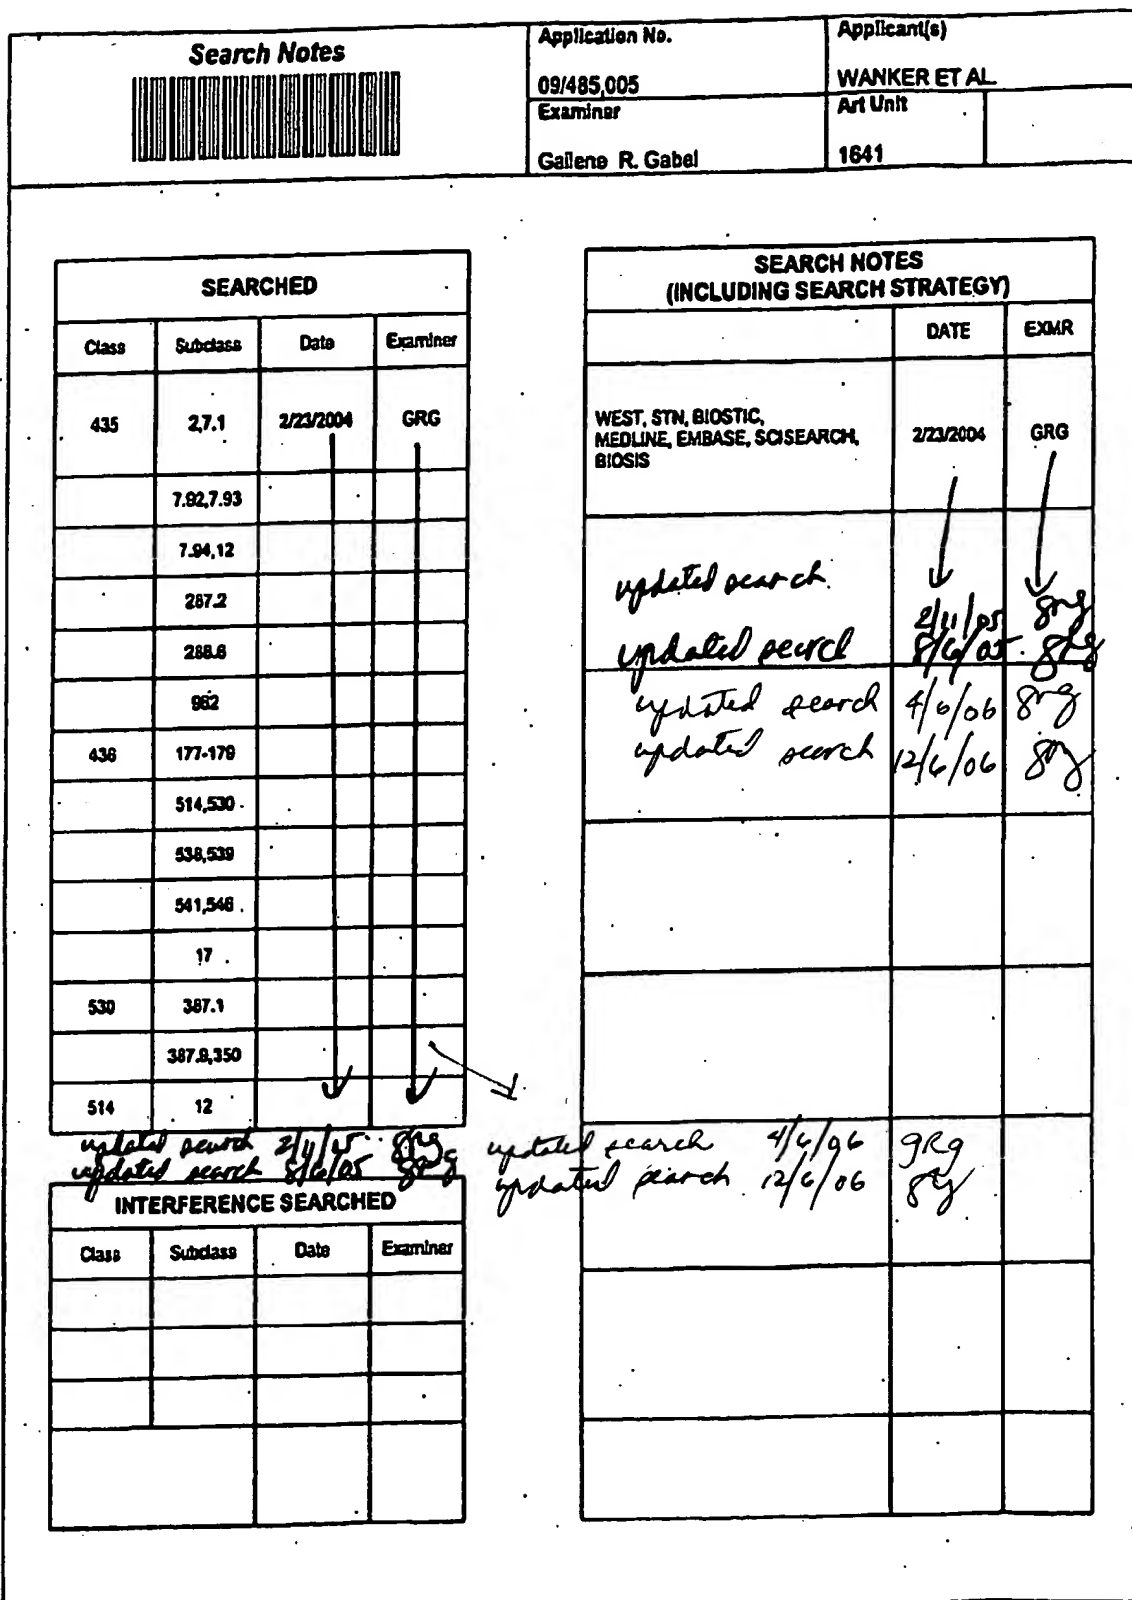 Search Notes
Application No.
09/485,005
Applicant(s)
WANKER ET AL.
Examiner
Gailene R. Gabel
Art Unit
1641
SEARCHED
Class Subclass Date Examiner
435 2,7.1 2/23/2004 GRG
7.92,7.93
7.94,12
287.2
288.6
962
436 177-179
514,530
538,539
541,546
17
530 387.1
387.9,350
514 12
updated search 2/11/05 grg
updated search 8/6/05 grg
updated search 4/6/06 gRg
updated search 12/6/06 grg
INTERFERENCE SEARCHED
Class Subclass Date Examiner
SEARCH NOTES
(INCLUDING SEARCH STRATEGY)
DATE EXMR
WEST, STN, BIOSTIC,
MEDLINE, EMBASE, SCISEARCH,
BIOSIS
2/23/2004 GRG
updated search 2/11/05 grg
updated search 8/6/05 grg
updated search 4/6/06 grg
updated search 12/6/06 grg